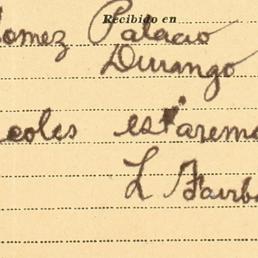 Recibido en
omez Palacio
Durango
coles estaremo
L Fairb